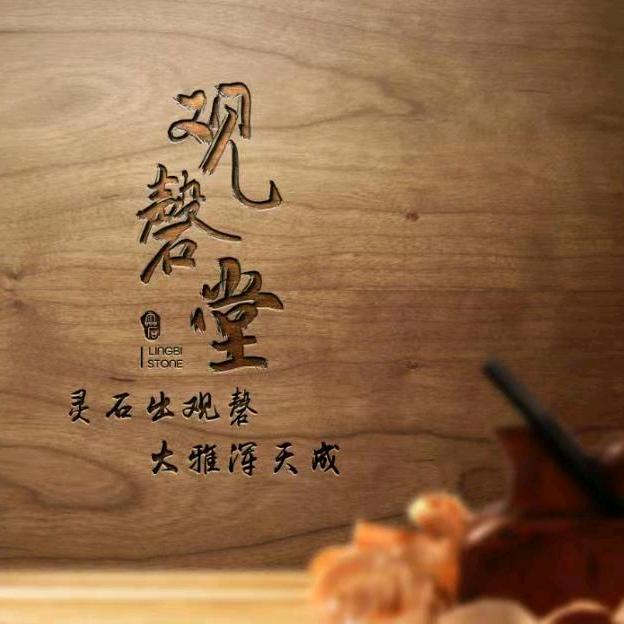 观磬堂
LINGBI
STONE
灵石出观磬
大雅浑天成